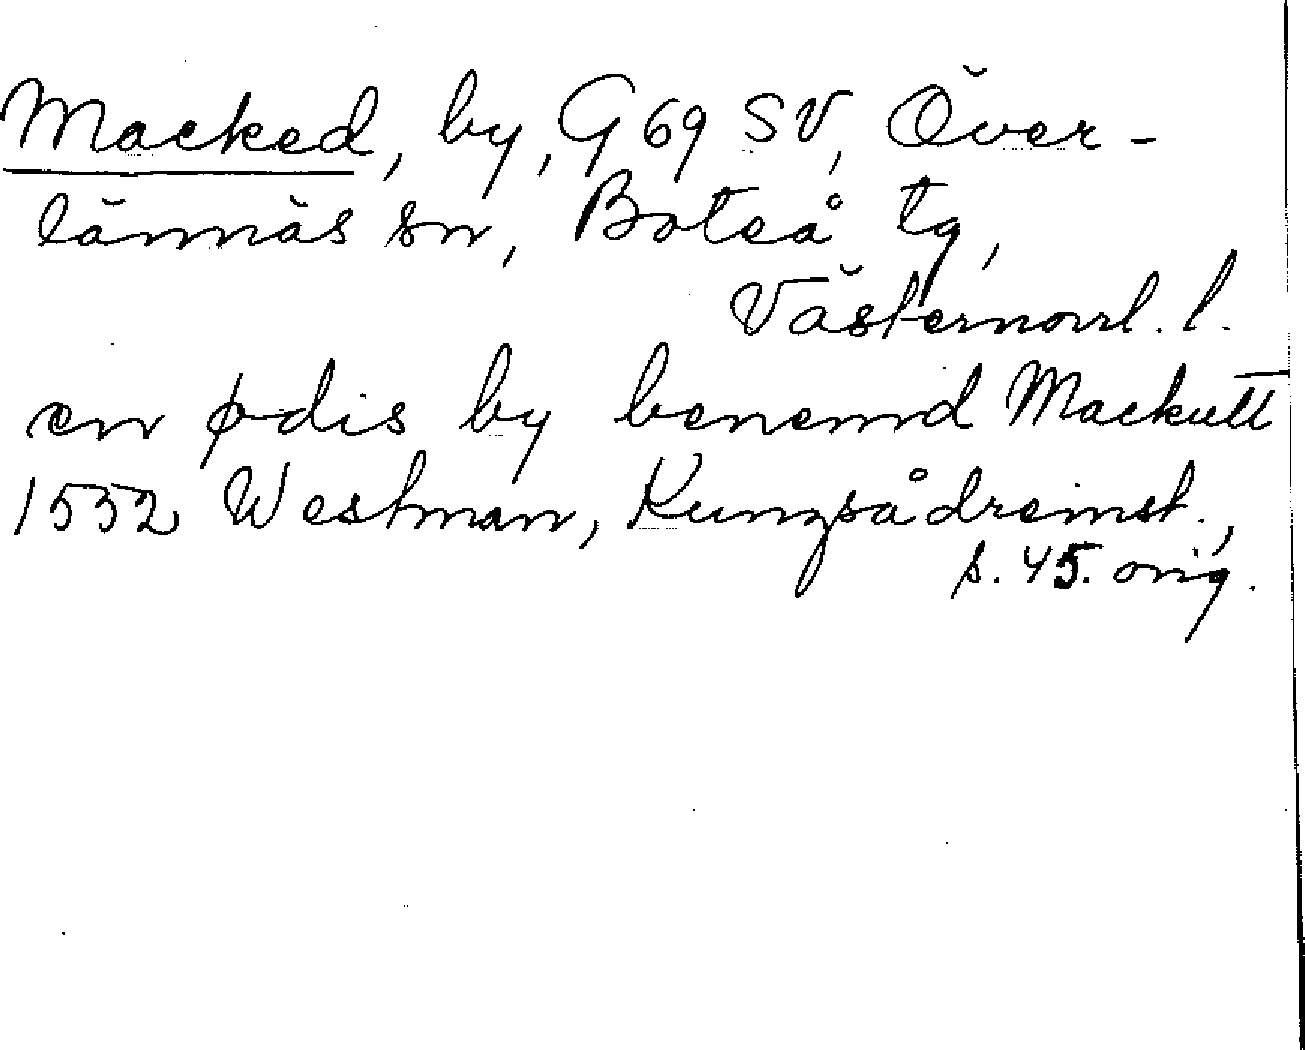 Macked, by, G 69 SV, Över-
lännäs sn, Boteå tg,
Västernorrl. l.
en ødis by benemd Mackutt
1552 Westman, Kungsådreinst.,
s. 45. orig.